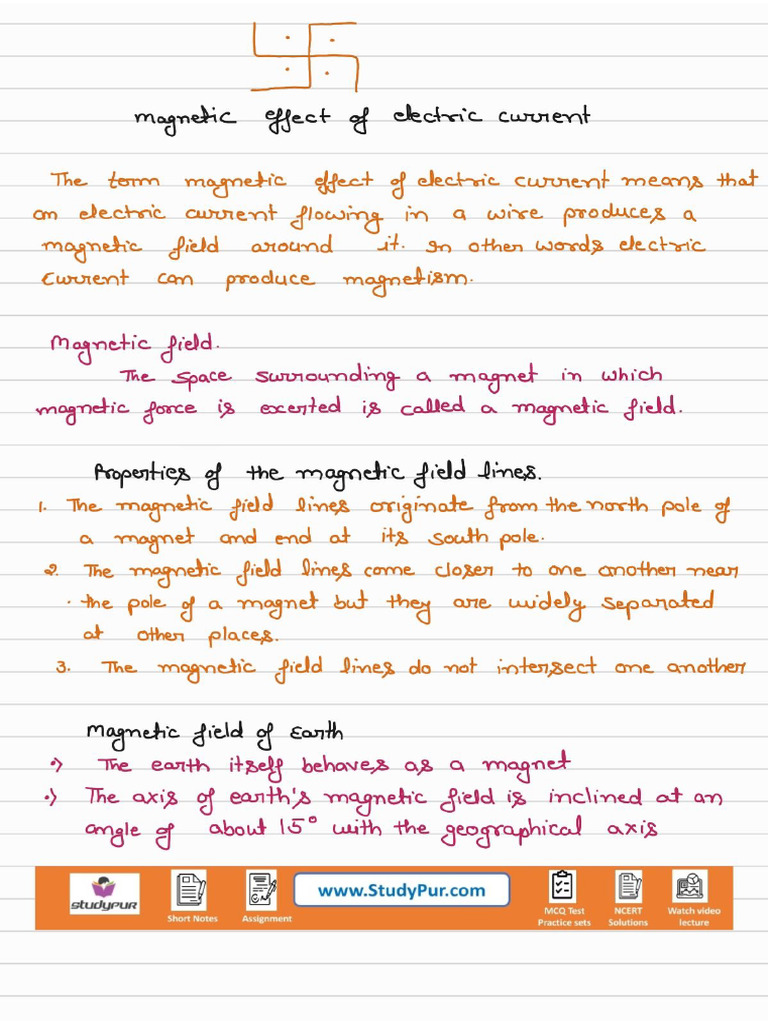 magnetic effect of electric current
The term magnetic effect of electric current means that
an electric current flowing in a wire produces a
magnetic field around it. In other words electric
current can produce magnetism.
Magnetic field.
The space surrounding a magnet in which
magnetic force is exerted is called a magnetic field.
Properties of the magnetic field lines.
1. The magnetic field lines originate from the north pole of
a magnet and end at its south pole.
2. The magnetic field lines come closer to one another near
the pole of a magnet but they are widely separated
at other places.
3. The magnetic field lines do not intersect one another
Magnetic field of Earth
•) The earth itself behaves as a magnet
•) The axis of earth's magnetic field is inclined at an
angle of about 15° with the geographical axis
studypur
Short Notes
Assignment
www.StudyPur.com
MCQ Test
Practice sets
NCERT
Solutions
Watch video
lecture